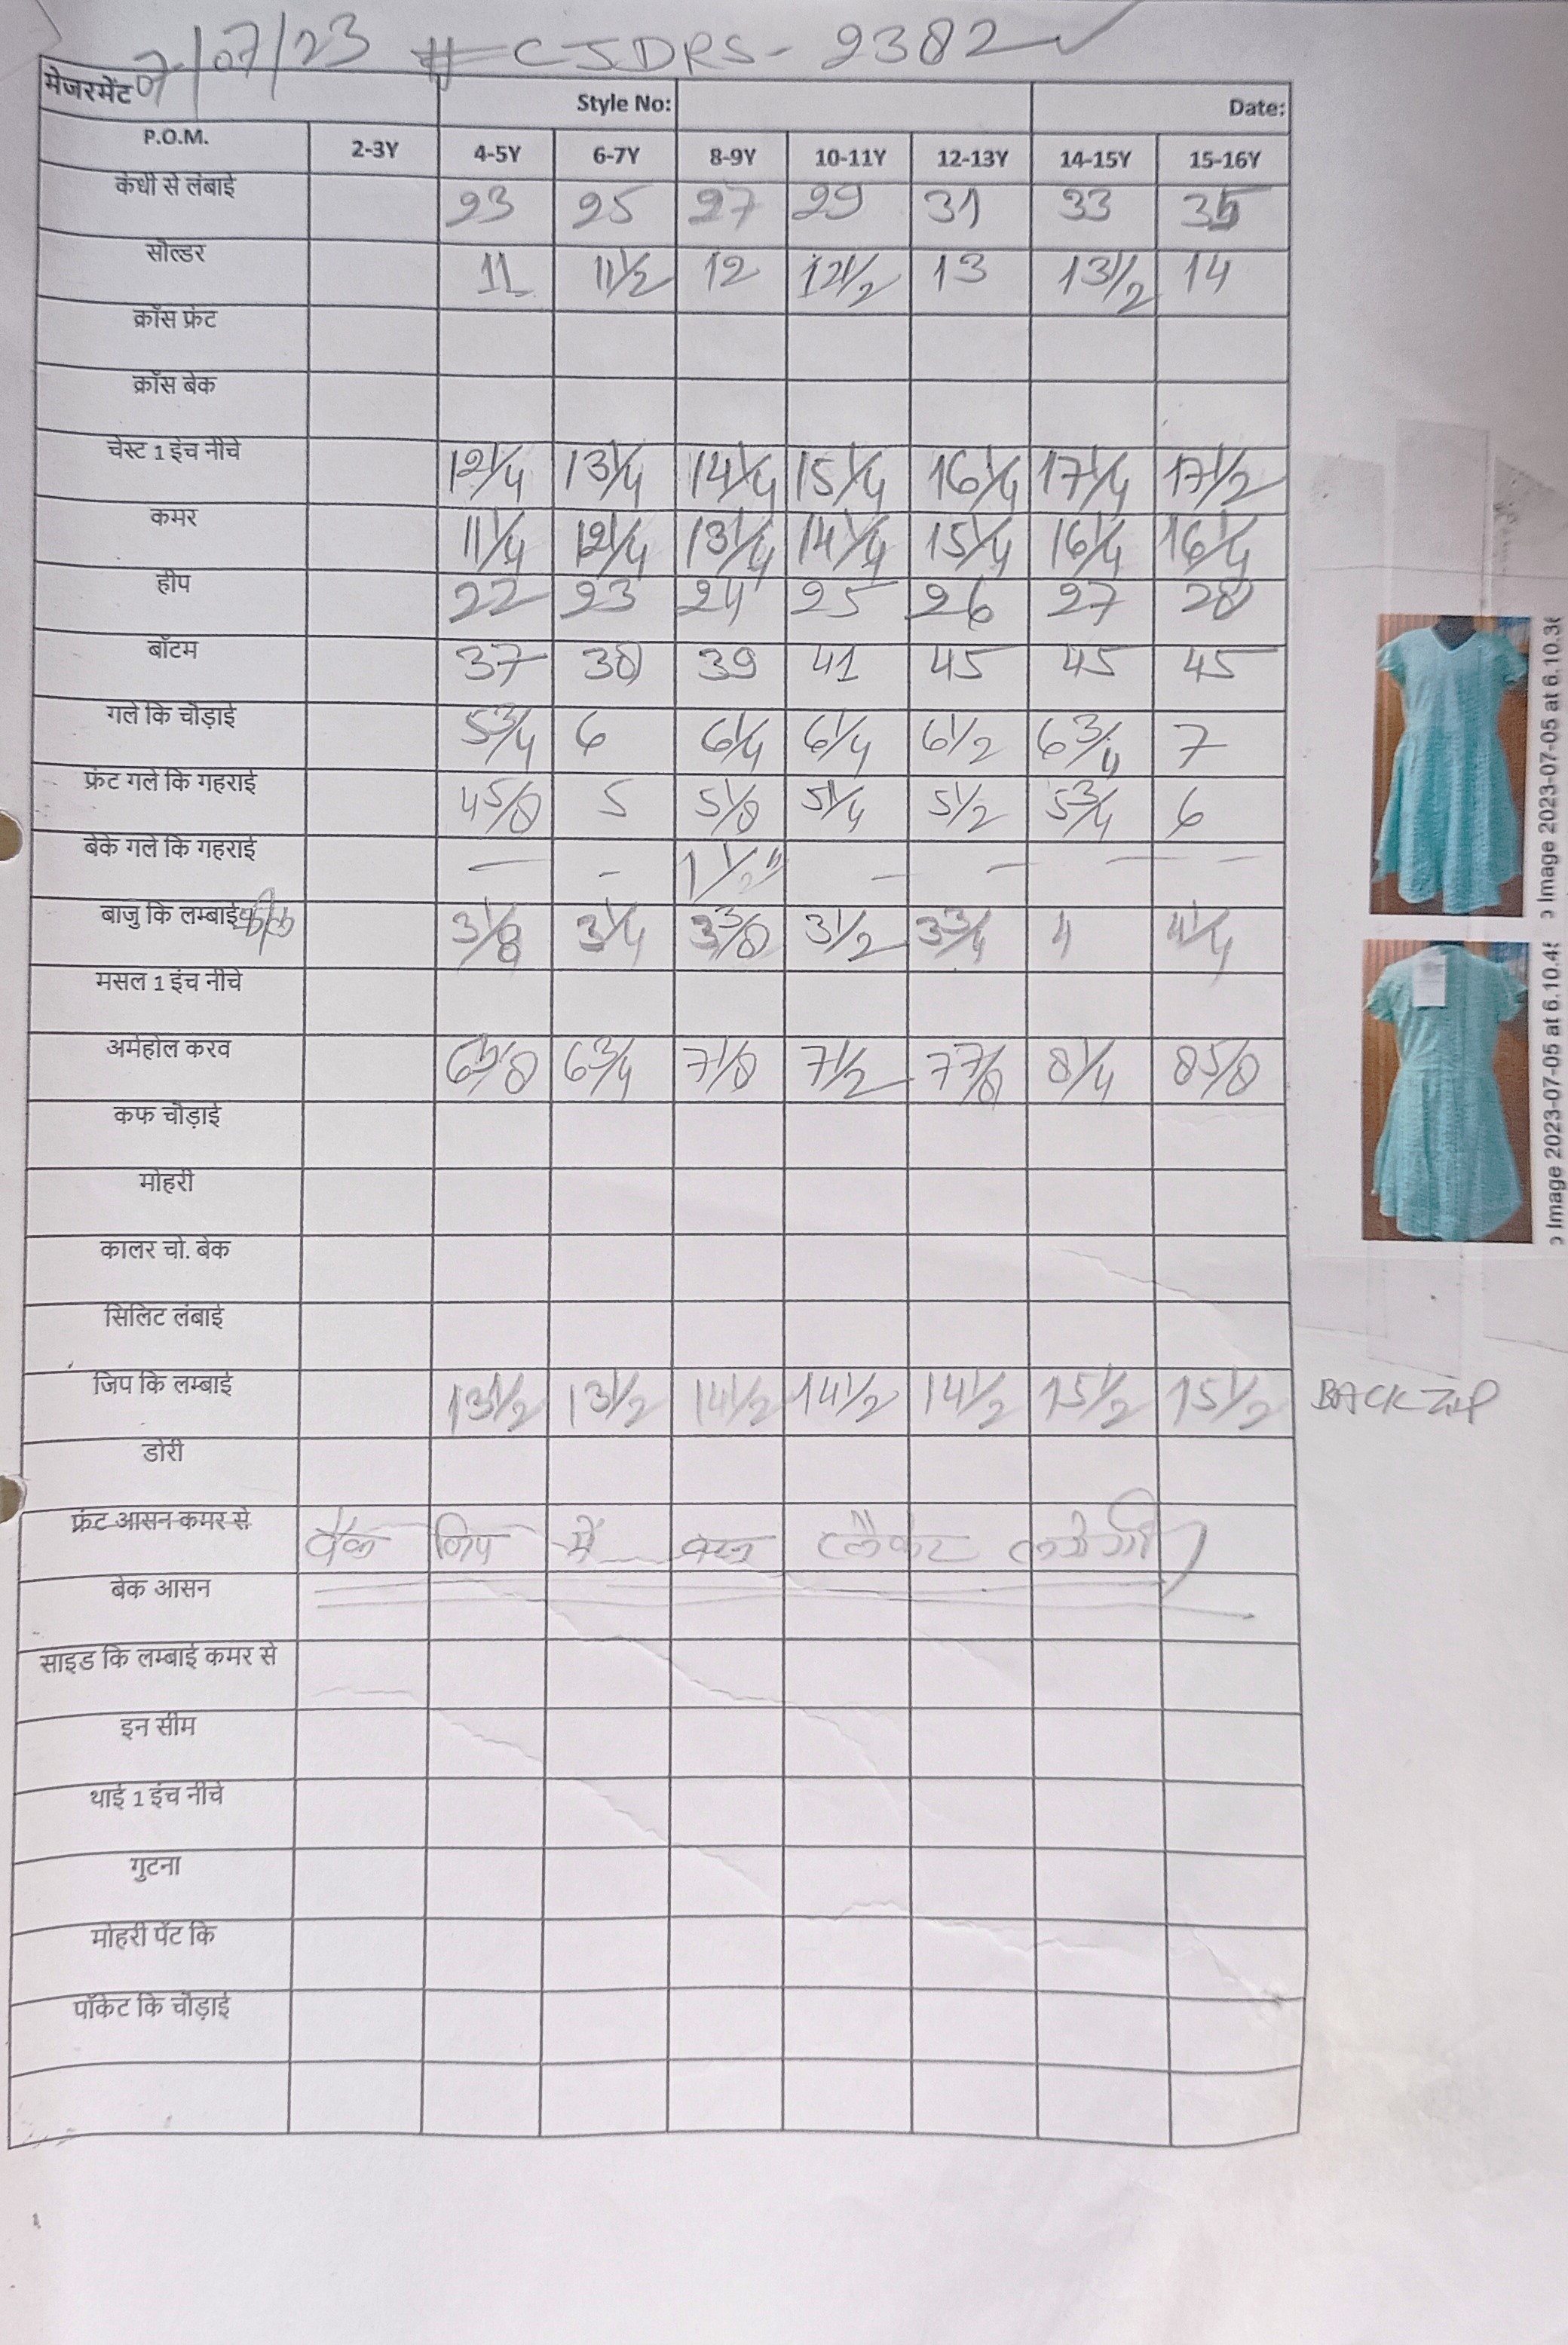 07/07/23 # CJDRS-2382
मेजरमेंट Style No: Date:
P.O.M. 2-3Y 4-5Y 6-7Y 8-9Y 10-11Y 12-13Y 14-15Y 15-16Y
कंधी से लंबाई 23 25 27 29 31 33 35
सौल्डर 11 11 1/2 12 12 1/2 13 13 1/2 14
क्रॉस फ्रंट
क्रॉस बेक
चेस्ट 1 इंच नीचे 12 1/4 13 1/4 14 1/4 15 1/4 16 1/4 17 1/4 17 1/2
कमर 11 1/4 12 1/4 13 1/4 14 1/4 15 1/4 16 1/4 16 1/4
हीप 22 23 24 25 26 27 28
बॉटम 37 38 39 41 45 45 45
गले कि चौड़ाई 5 3/4 6 6 1/4 6 1/4 6 1/2 6 3/4 7
फ्रंट गले कि गहराई 4 5/8 5 5 1/8 5 1/4 5 1/2 5 3/4 6
बेके गले कि गहराई — - 1 1/2" — — — —
बाजु कि लम्बाई 3 1/8 3 1/4 3 3/8 3 1/2 3 3/4 4 4 1/4
मसल 1 इंच नीचे
अर्महोल करव 6 3/4 7 1/8 7 1/2 7 7/8 8 1/4 8 5/8
कफ चौड़ाई
मोहरी
कालर चो. बेक
सिलिट लंबाई
जिप कि लम्बाई 13 1/2 13 1/2 14 1/2 14 1/2 14 1/2 15 1/2 15 1/2 BACK ZIP
डोरी
फ्रंट आसन कमर से बैक जिप में लगेगी
बेक आसन
साइड कि लम्बाई कमर से
इन सीम
थाई 1 इंच नीचे
गुटना
मोहरी पेंट कि
पॉकेट कि चौड़ाई
Image 2023-07-05 at 6.10.3
Image 2023-07-05 at 6.10.4